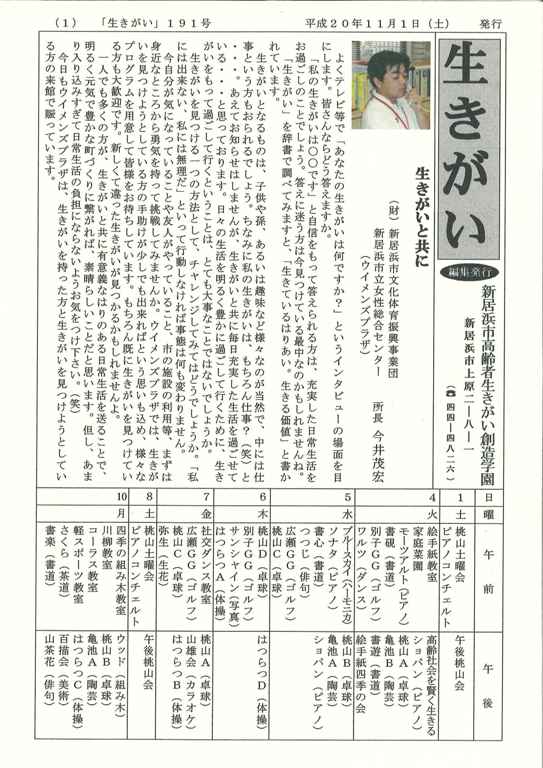 (1) 「生きがい」191号 平成20年11月1日(土) 発行
生きがい
編集発行
新居浜市高齢者生きがい創造学園
新居浜市上原二-八-一
(☎四四-四八二六)
生きがいと共に
(財)新居浜市文化体育振興事業団
新居浜市立女性総合センター
(ウイメンズプラザ)
所長 今井茂宏
よくテレビ等で「あなたの生きがいは何ですか?」というインタビューの場面を目
にします。皆さんならどう答えますか。
「私の生きがいは○○です」と自信をもって答えられる方は、充実した日常生活を
お過ごしのことでしょう。答えに迷う方は今見つけている最中なのかもしれませんね。
「生きがい」を辞書で調べてみますと、「生きているはりあい。生きる価値」と書か
れています。
生きがいとなるものは、子供や孫、あるいは趣味など様々なのが当然で、中には仕
事という方もおられるでしょう。ちなみに私の生きがいは、もちろん仕事?(笑)と
・・・。あえてお知らせはしませんが、生きがいと共に毎日充実した生活を過ごせて
いる・・・と思っております。日々の生活を明るく豊かに過ごして行くために、生き
がいをもって過ごして行くということは、とても大事なことではないでしょうか。
生きがいを見つける一つの方法として、チャレンジしてみてはどうでしょうか。「私
には出来ない、私には無理だ」といって行動しなければ事態は何も変わりません。
今自分が気になっていることや友人がやっていること、市の施設の利用等、まずは
身近なところから勇気を持って挑戦してみませんか。ウイメンズプラザでは、生きが
いを見つけようとしている方の手助けが少しでも出来ればという思いも込め、様々な
プログラムを用意して皆様をお待ちしています。もちろん既に生きがいを見つけてい
る方も大歓迎です。新しくて違った生きがいが見つかるかもしれませんよ。
一人でも多くの方が、生きがいと共に有意義なはりのある日常生活を送ることで、
明るく元気で豊かな町づくりに繋がれば、素晴らしいことだと思います。但し、あま
り入り込みすぎて日常生活の負担にならないようお気をつけ下さい。(笑)
今日もウイメンズプラザは、生きがいを持った方と生きがいを見つけようとしてい
る方の来館で賑っています。
日 曜 午前 午後
1 土
桃山土曜会
ピアノコンチェルト
午後桃山会
4 火
絵手紙教室
家庭菜園
モーツアルト(ピアノ)
書硯(書道)
別子GG(ゴルフ)
ワルツ(ダンス)
高齢社会を賢く生きる
ショパン(ピアノ)
桃山A(卓球)
亀池B(陶芸)
書遊(書道)
絵手紙四季の会
5 水
ブルースカイ(ハーモニカ)
ソナタ(ピアノ)
書心(書道)
つつじ(俳句)
広瀬GG(ゴルフ)
桃山C(卓球)
桃山B(卓球)
亀池A(陶芸)
ショパン(ピアノ)
6 木
桃山D(卓球)
別子GG(ゴルフ)
サンシャイン(写真)
はつらつA(体操)
はつらつD(体操)
7 金
社交ダンス教室
広瀬GG(ゴルフ)
桃山C(卓球)
弥生(生花)
桃山A(卓球)
山雄会(カラオケ)
はつらつB(体操)
8 土
桃山土曜会
ピアノコンチェルト
午後桃山会
10 月
四季の組み木教室
川柳教室
コーラス教室
軽スポーツ教室
さくら(茶道)
書楽(書道)
ウッド(組み木)
桃山B(卓球)
亀池A(陶芸)
はつらつC(体操)
百描会(美術)
山茶花(俳句)